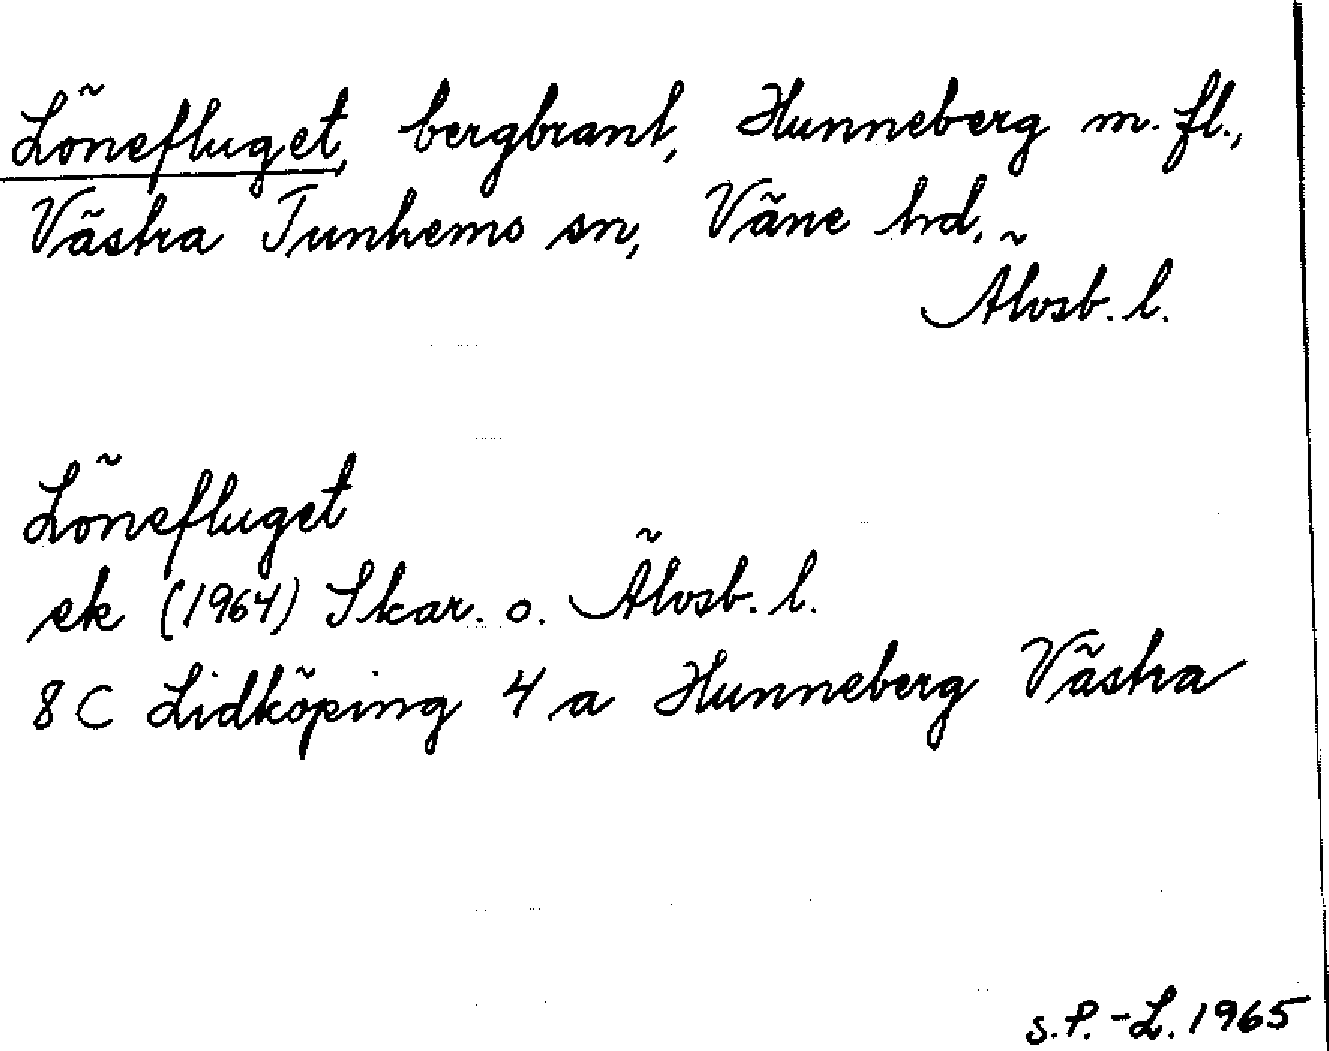 Lönefluget, bergbrant, Hunneberg m. fl.,
Västra Tunhems sn, Väne hd,
Älvsb. l.
Lönefluget
ek (1964) Skar. o. Älvsb. l.
8 C Lidköping 4 a Hunneberg Västra
S.P.-L. 1965